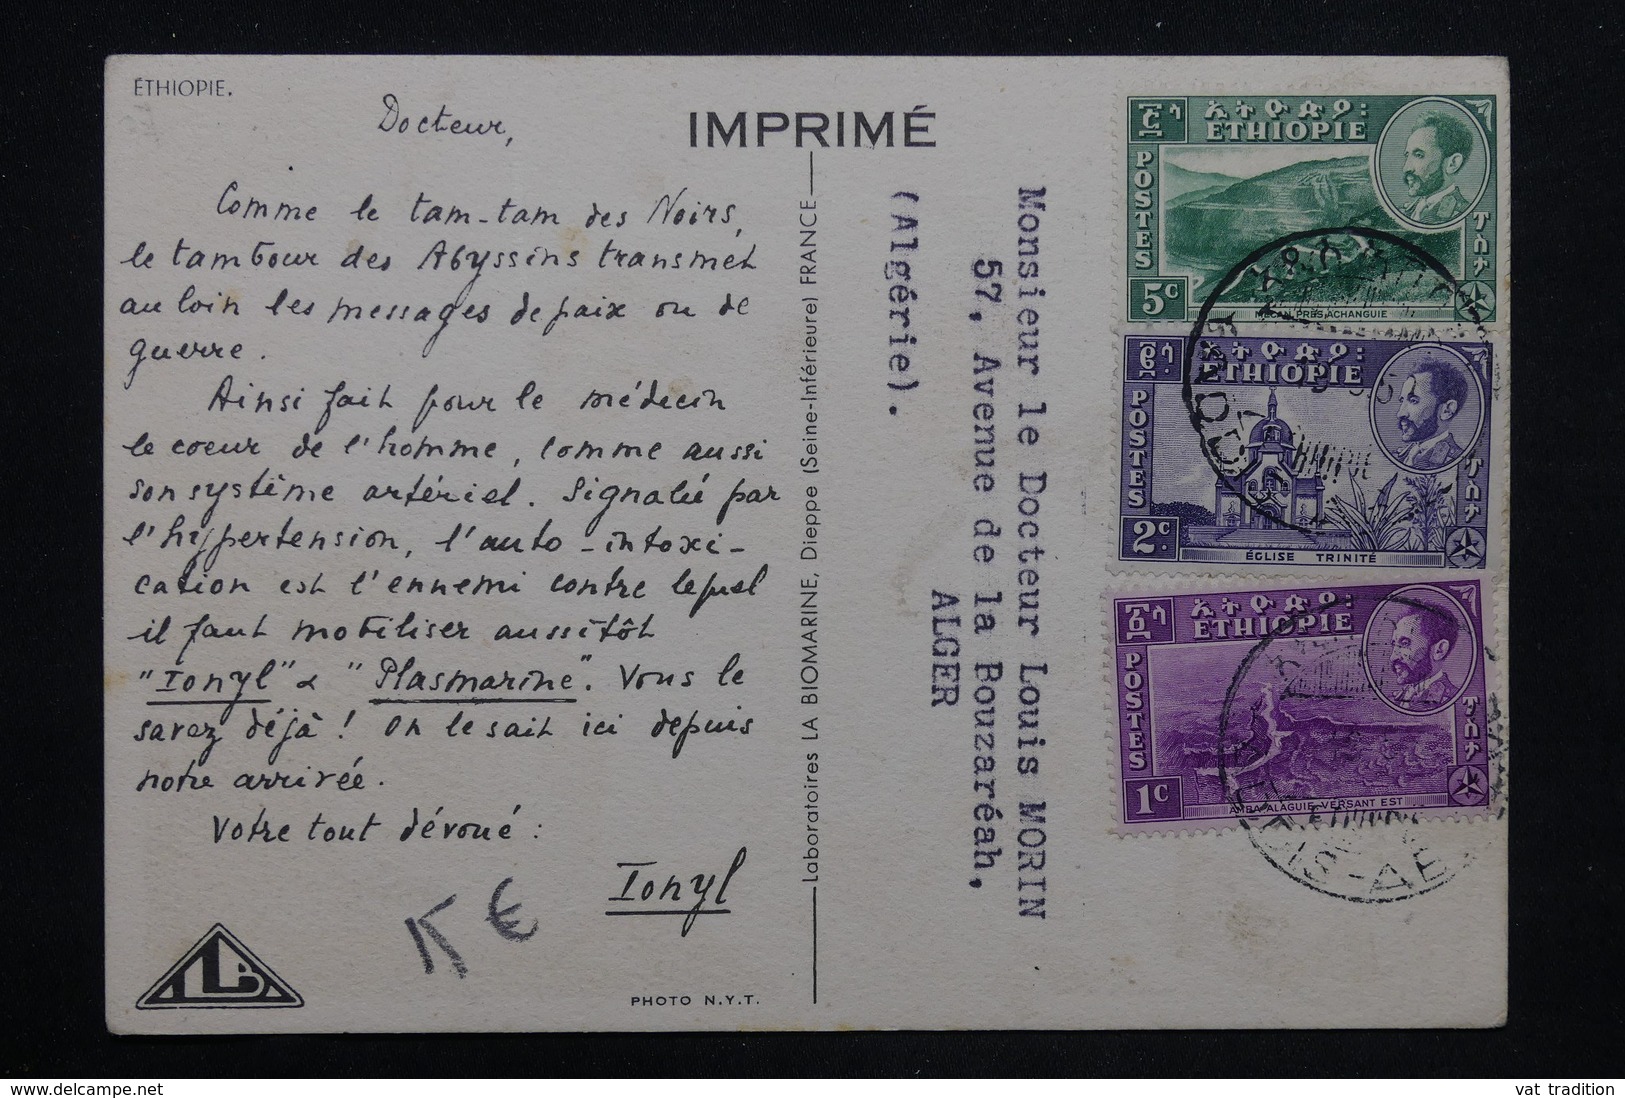 ÉTHIOPIE.
Docteur,
Comme le tam-tam des Noirs,
le tambour des Abyssins transmet
au loin les messages de paix ou de
guerre.
Ainsi fait pour le médecin
le coeur de l'homme, comme aussi
son système artériel. Signalée par
l'hypertension, l'auto-intoxi-
cation est l'ennemi contre lequel
il faut mobiliser aussitôt
"Ionyl" & "Plasmarine". Vous le
savez déjà ! On le sait ici depuis
notre arrivée.
Votre tout dévoué :
Ionyl
15 €
LB
PHOTO N.Y.T.
Laboratoires LA BIOMARINE, Dieppe (Seine-Inférieure) FRANCE
IMPRIMÉ
Monsieur le Docteur Louis MORIN
57, Avenue de la Bouzaréah,
ALGER
(Algérie).
ኢትዮጵያ፡
ETHIOPIE
POSTES
ፖስታ
5c
MECAN PRÈS ACHANGUIE
ኢትዮጵያ፡
ETHIOPIE
POSTES
ፖስታ
2c.
ÉGLISE TRINITÉ
ኢትዮጵያ፡
ETHIOPIE
POSTES
ፖስታ
1c
AMBA-ALAGUIE-VERSANT EST
delcampe.net
vat tradition